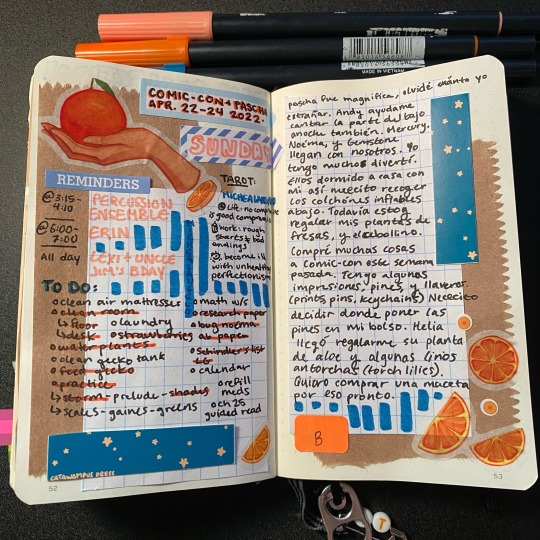 MADE IN VIETNAM
COMIC-CON + PASCHA
APR. 22-24 2022.
SUNDAY
REMINDERS
@3:15-
4:10
PERCUSSION
ENSEMBLE
@6:00-
7:00
ERIN
All day
LEXI + UNCLE
JIM'S BDAY
TO DO:
clean air mattresses
clean room
floor
laundry
desk
strawberries
water plants
clean gecko tank
feed gecko
practice
storm-prelude-shades
scales-gaines-greens
TAROT:
good compromise
work: rough
starts + bad
endings
become ill
with unhealthy
perfectionism
math w/s
research paper
bug noems
ac paper
Schindler's list
calendar
refill
meds
och 25
guided read
CATAWAMPUS PRESS
52
pascha fue magnifica, olvidé cuánto yo
extrañar. Andy ayudame
cantar la parte del bajo
anoche también. Mercury,
Noema, y Gemstone
llegan con nosotros. Yo
tengo muchos divertí.
Ellos dormido a casa con
mi así necesito recoger
los colchónes inflables
abajo. Todavía estoy
regalar mis plantas de
fresas, y el cebollino.
Compré muchas cosas
a Comic-con este semana
pasada. Tengo algunas
impresiones, pines, y llaveros.
(prints, pins, keychains) Necesito
decidir donde poner las
pines en mi bolso. Helia
llegó regalarme su planta
de aloe y algunas linos
antorchas (torch lilies).
Quiero comprar una maceta
por eso pronto.
B
53
T